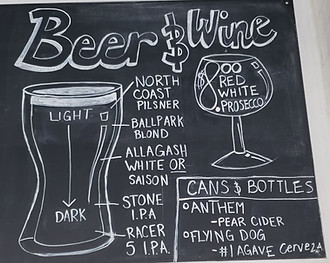 Beer & Wine
NORTH
COAST
PILSNER
LIGHT
BALLPARK
BLOND
ALLAGASH
WHITE OR
SAISON
STONE
I.P.A
DARK
RACER
5 I.P.A.
RED
WHITE
PROSECCO
CANS & BOTTLES
ANTHEM
-PEAR CIDER
FLYING DOG
-#1 AGAVE CerveZA